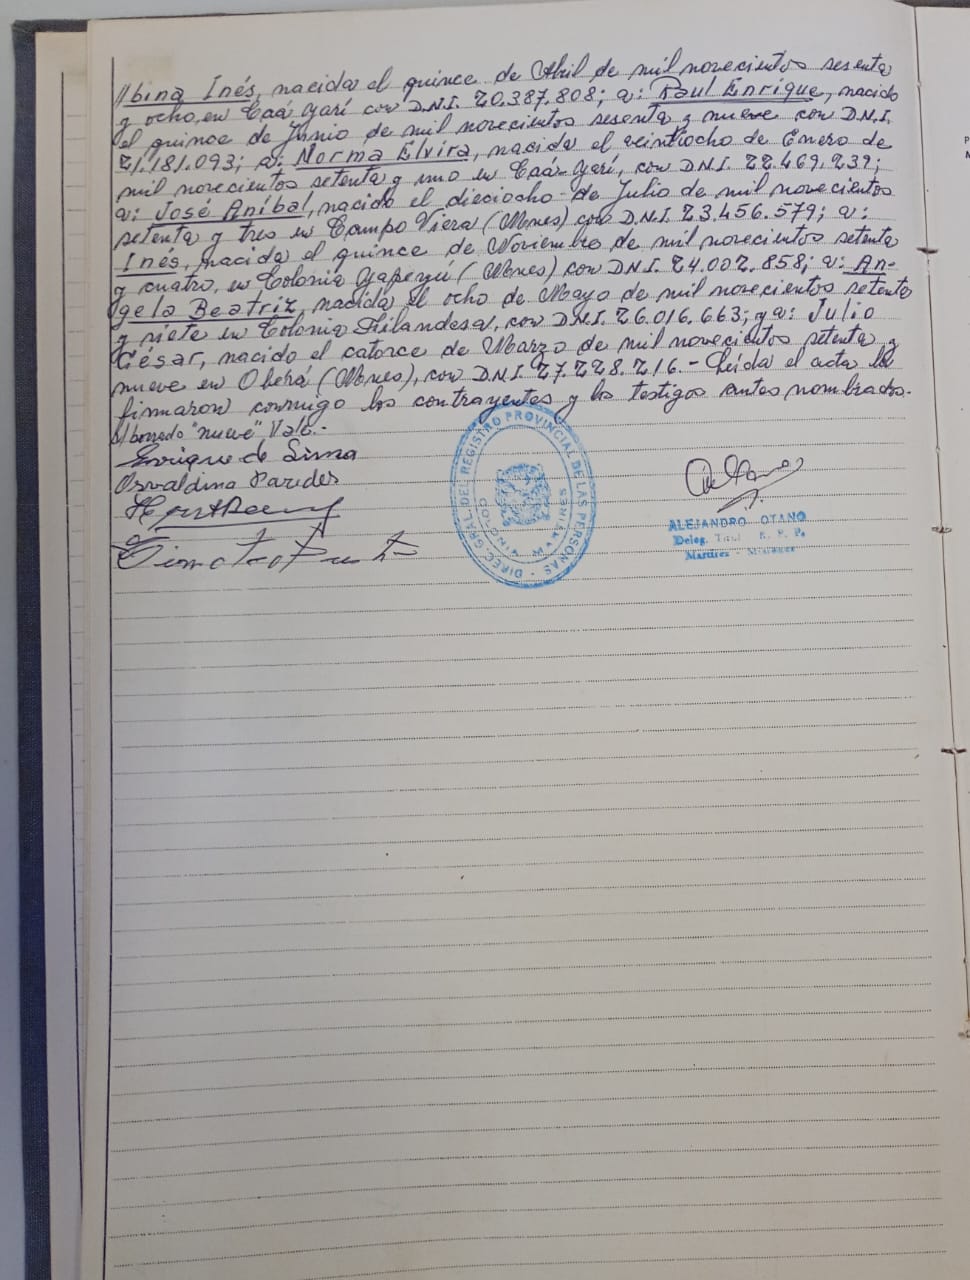 //bina Inés, nacida el quince de Abril de mil novecientos sesenta
y ocho, en Caá Yarí con D.N.I. 20.387.808; a: Raul Enrique, nacido
el quince de Junio de mil novecientos sesenta y nueve con D.N.I.
21.181.093; a: Norma Elvira, nacida el veintiocho de Enero de
mil novecientos setenta y uno en Caá-Yarí, con D.N.I. 22.469.239;
a: José Aníbal, nacido el dieciocho de Julio de mil novecientos
setenta y tres en Campo Viera (Mnes) con D.N.I. 23.456.579; a:
Inés, nacida el quince de Noviembre de mil novecientos setenta
y cuatro, en Colonia Yapeyú (Mnes) con D.N.I. 24.002.858; a: An-
gela Beatriz, nacida el ocho de Mayo de mil novecientos setenta
y siete en Colonia Filandesa, con D.N.I. 26.016.663; y a: Julio
César, nacido el catorce de Marzo de mil novecientos setenta y
nueve en Oberá (Mnes), con D.N.I. 27.228.216.- Leída el acta la
firmaron conmigo los contrayentes y los testigos antes nombrados.-
S/borrado "nueve", Vale.-
Enrique de Lima
Osvaldina Paredes
DIREC. GRAL. DEL REGISTRO PROVINCIAL DE LAS PERSONAS
MISIONES
ALEJANDRO OTANO
Deleg. Titul. R. P. P.
Martires - Misiones